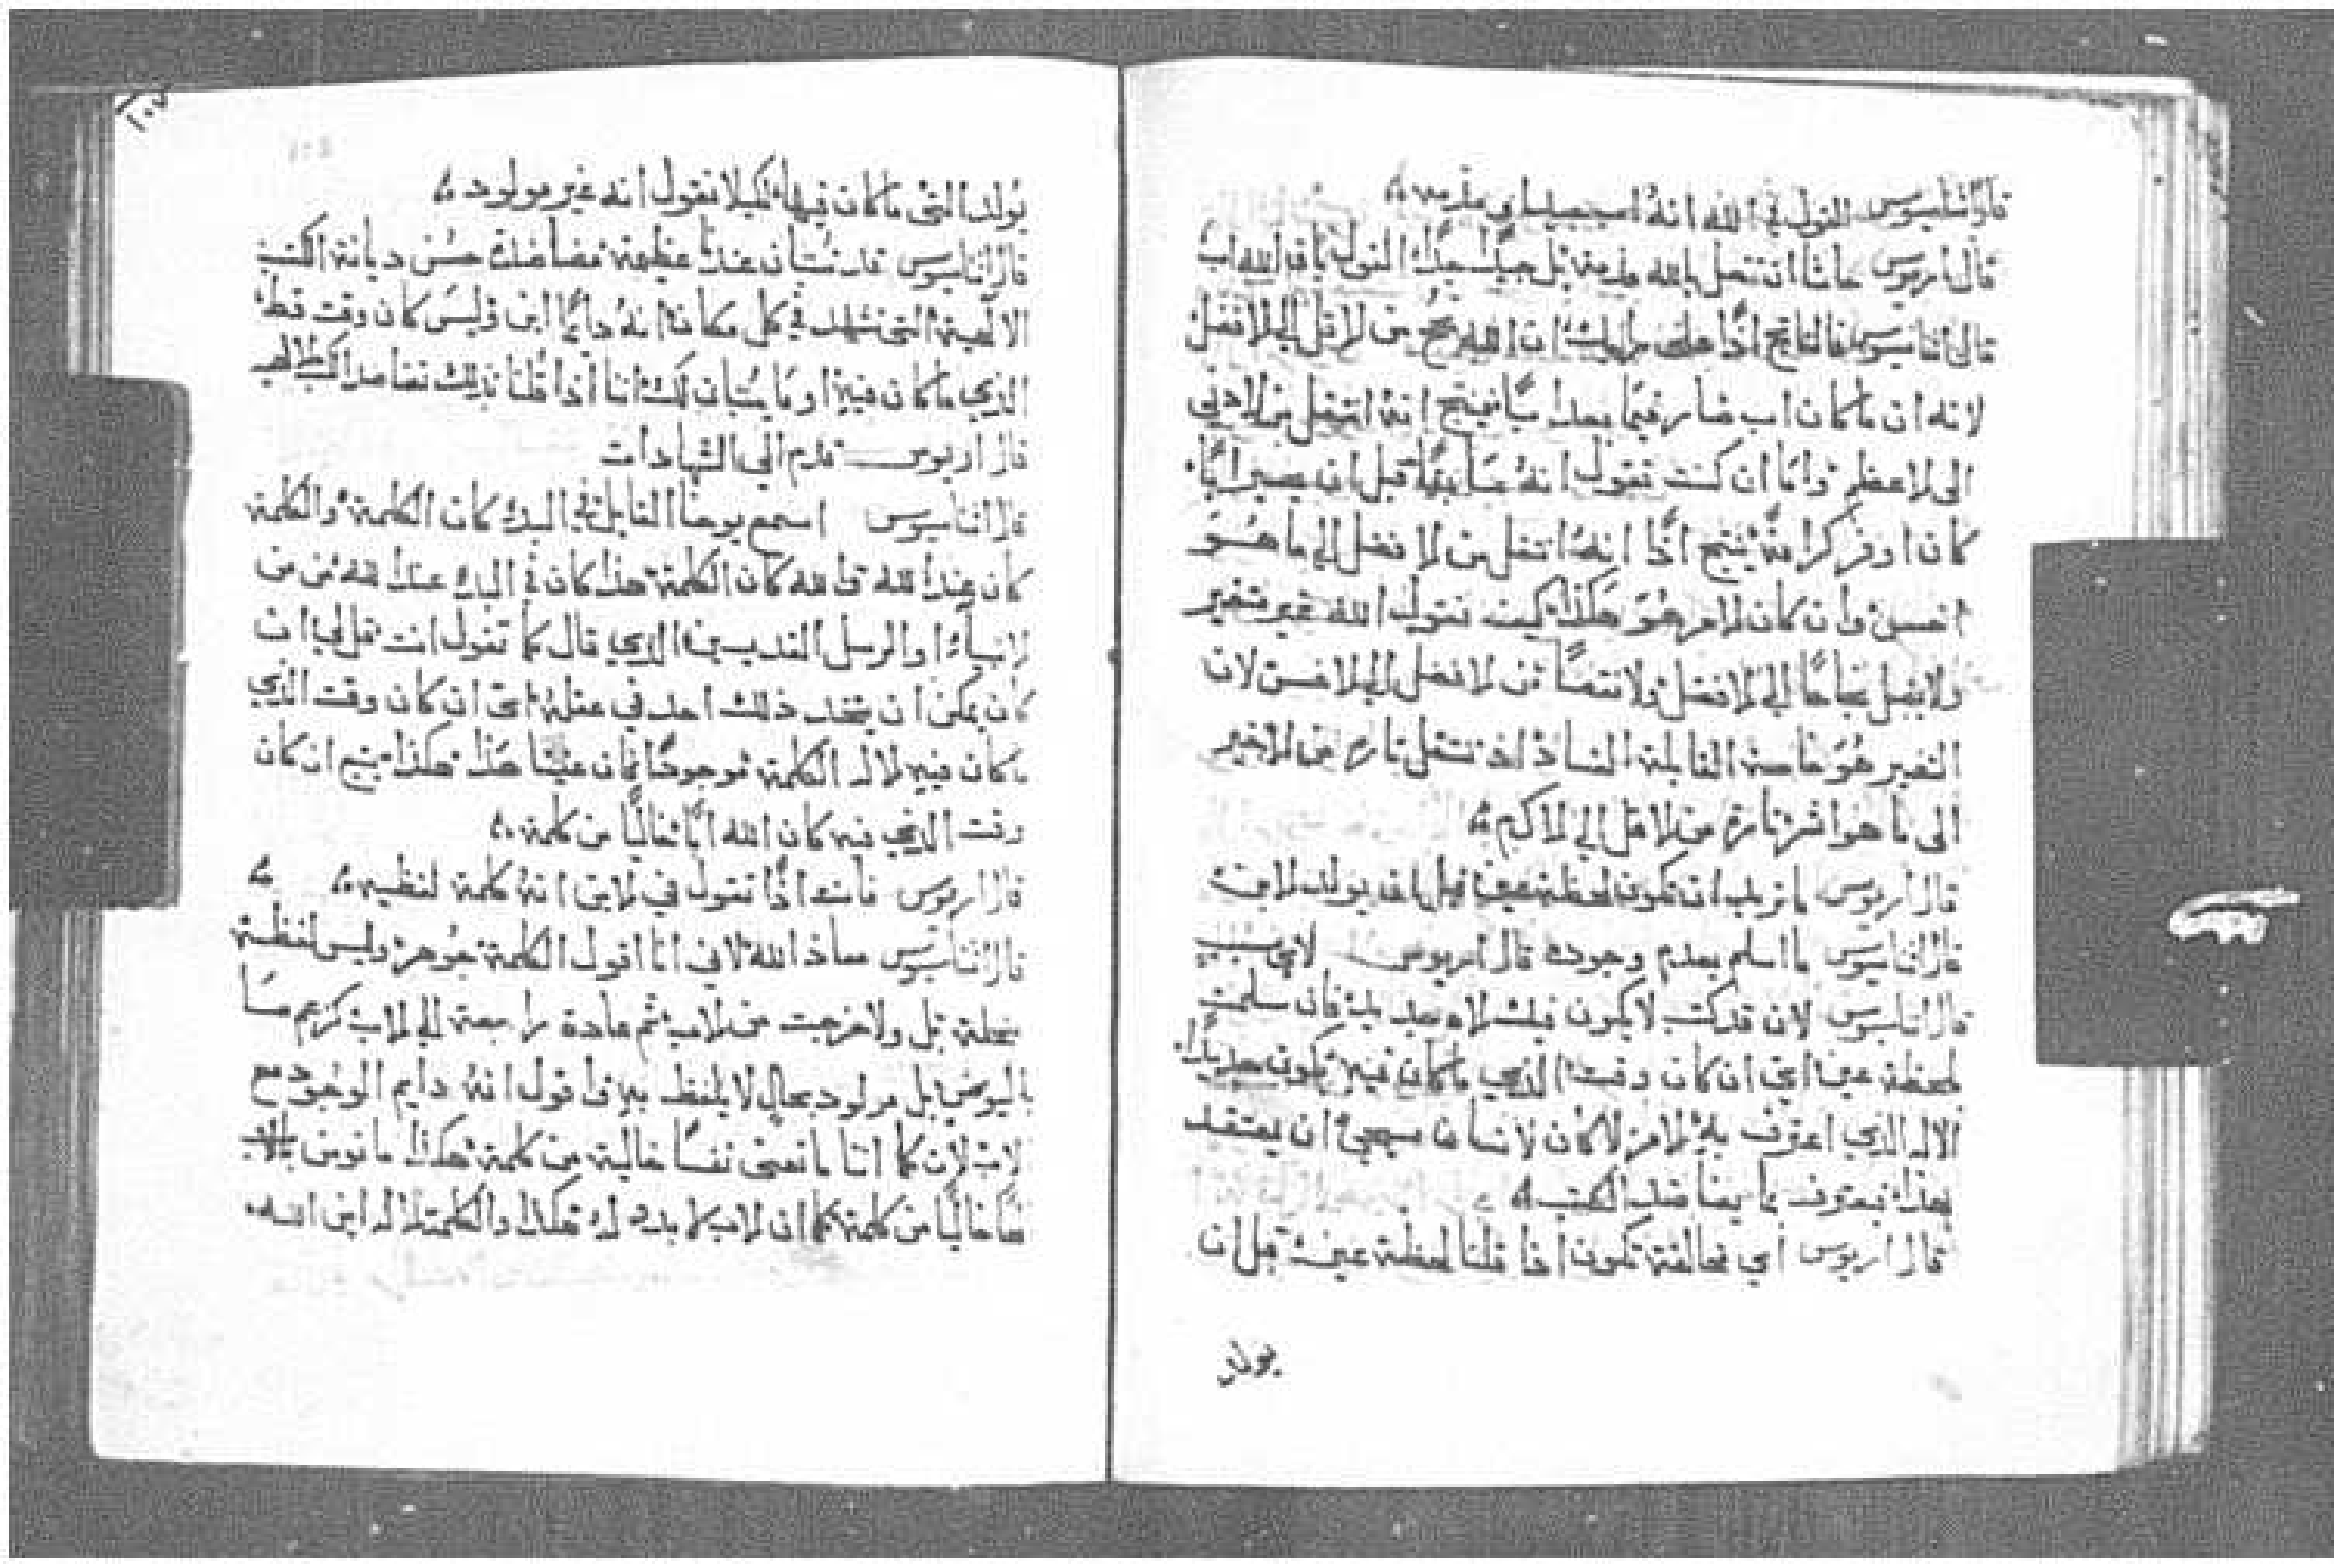 قال اتناسيوس القول في الله انه اب جيد او مذمه
قال اريوس حاشا ان تتصل بالله مذمة بل جيد جدا القول بان الله اب
قال اتناسيوس فالناتج اذا على رايك ان الله نجح من الاقل الي الافضل
لانه ان ما كان اب صار فيما بعد ابا فينتج انه انتقل من الادني
الى الاعظم واما ان كنت تقول انه سابقا قبل ان يصير ابا
كان اوفر كرامة ينتج اذا انه انتقل من الافضل الي ما هو
اخس وان كان الامر هو هكذا كيف نقول الله غير متغير
ولا يقبل نجاحا الي الافضل ولا نقصا من الافضل الي الاخس لان
التغير هو خاصة القابلة الفساد اذ تنتقل تارة من الاخير
الى ما هو اشر تارة من الاقل الي الاكثر
قال اريوس ما تريد ان تكون لحظة عين قبل ان يولد الابن
قال اتناسيوس ما اسلم بعدم وجوده قال اريوس لاي سبب
قال اتناسيوس لان قد كتب لا يكون فيك الاه جديد فان سلمت
لحظة عين اعني ان كان وقت الذي ما كان فيه يكون جديدا
الاله الذي اعترف به الامر لا كان لانسان مسيحي ان يعتقد
بهذا فيعترف بما يضاضد الكتب
قال اريوس اي مخالفة تكون اذا قلنا لحظة عين قبل ان
يولد
١٠٧
يولد الشي ما كان فيها لكيلا نقول انه غير مولود
قال اتناسيوس قد تستبان عندك عظيمة مضاضدة حسن ديانة الكتب
الالهية التي تشهد في كل مكان انه دايما ابن وليس كان وقت قط
الذي ما كان فيه او ما يستبان لك اننا اذا قلنا ذلك نضاضد الكتب الالهيه
قال اريوس قدم الي الشهادات
قال اتناسيوس اسمع يوحنا القايل في البدء كان الكلمة والكلمة
كان عند الله والله كان الكلمة هذا كان في البدء عند الله من من
الانبياء او الرسل القديسين الذي قال كما تقول انت قل لي ان
كان يمكن ان يتخذ ذلك احد في عقله اعني ان كان وقت الذي
ما كان فيه الاله الكلمة موجودا فان علينا هذا هكذا ينتج ان كان
وقت الذي فيه كان الله ابا خاليا من كلمة
قال اريوس فانت اذا تقول في الابن انه كلمة لفظيه
قال اتناسيوس معاذ الله لاني انا اقول الكلمة جوهر وليس لفظة
بل ولا خرجت من الاب ثم عادة راجعة الي الاب كزعم
بل مولود بحال لا يلفظ به واقول انه دايم الوجود مع
الاب لان كما اننا ما نعني نفسا خالية من كلمة هكذا ما نومن بالاب
خاليا من كلمة كما ان الاب لا بدء له هكذا والكلمة الاله ابن الله